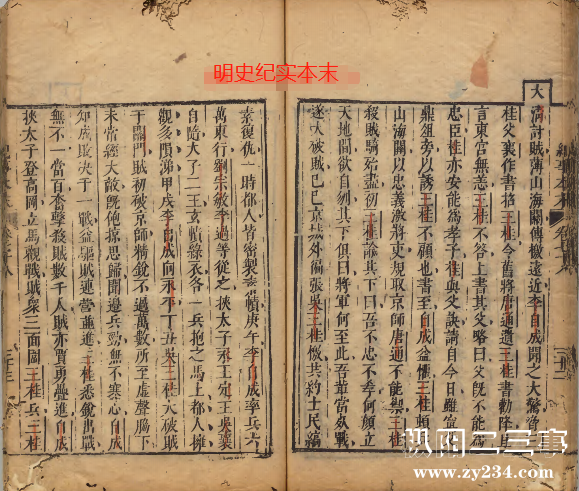 明史纪实本末
大
清計賊薄山海關傳檄遠近李自成聞之大驚
桂父襄作書招三桂令舊將唐通遺三桂書勸降
言東宮無恙三桂不答上書其父略曰父既不能為
忠臣桂亦安能為孝子桂與父訣請自今日
鼎俎旁以誘三桂不顧也書至自成益懼三桂頓
山海關以忠義激將吏規取京師唐通不能禦三桂
殺賊騎始盡初三桂論其下曰吾不忠不孝何顏立
天地間欲自刎其下俱曰將軍何至此吾輩當死戰
遂大破賊己巳京城外徧張吳三桂檄共約士民縞
素復仇一時都人皆密製素幘庚午李自成率兵六
萬東行劉宗敏李過等從之挾太子永王定王吳襄
自隨太子二王玄幘綠衣各一兵抱之馬上都人擁
觀多隕涕甲戌李自成向永平丁丑吳三桂大破賊
于關門賊初破京師精銳不過萬數所至虛聲脇下
未嘗經大敵既飽掠思歸聞邊兵勁無不寒心自成
知成敗决于一戰益驅賊連營並進三桂悉銳出戰
無不一當百奮擊殺賊數千人賊亦賈勇疊進自成
挾太子登高岡立馬觀戰賊衆三面圍三桂兵三桂
枞阳二三事
www.zy234.com